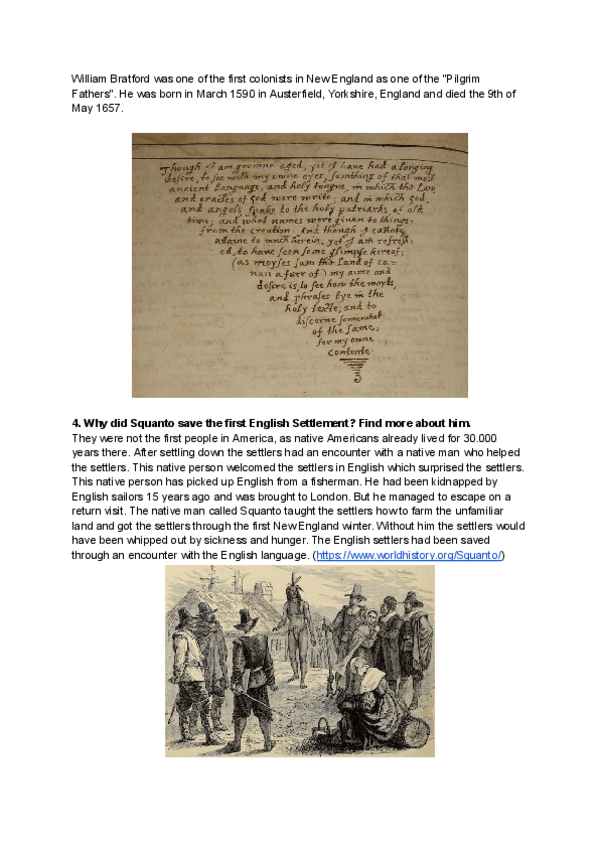 William Bratford was one of the first colonists in New England as one of the "Pilgrim
Fathers". He was born in March 1590 in Austerfield, Yorkshire, England and died the 9th of
May 1657.
Though I am growne aged, yet I have had a longing
desire, to see with my owne eyes, somthing of that most
ancient language, and holy tongue, in which the Law,
and oracles of God were write; and in which God,
and angels, spake to the holy patriarks, of old
time; and what names were given to things,
from the creation. And though I canot
attaine to much herein, yet I am refresh-
ed, to have seen some glimpse hereof;
(as moyses saw the Land of ca-
nan a farr of) my aime and
desire is, to see how the words,
and phrases lye in the
holy texte; and to
discerne somewhat
of the same;
for my owne
contente.
4. Why did Squanto save the first English Settlement? Find more about him.
They were not the first people in America, as native Americans already lived for 30.000
years there. After settling down the settlers had an encounter with a native man who helped
the settlers. This native person welcomed the settlers in English which surprised the settlers.
This native person has picked up English from a fisherman. He had been kidnapped by
English sailors 15 years ago and was brought to London. But he managed to escape on a
return visit. The native man called Squanto taught the settlers how to farm the unfamiliar
land and got the settlers through the first New England winter. Without him the settlers would
have been whipped out by sickness and hunger. The English settlers had been saved
through an encounter with the English language. (https://www.worldhistory.org/Squanto/)